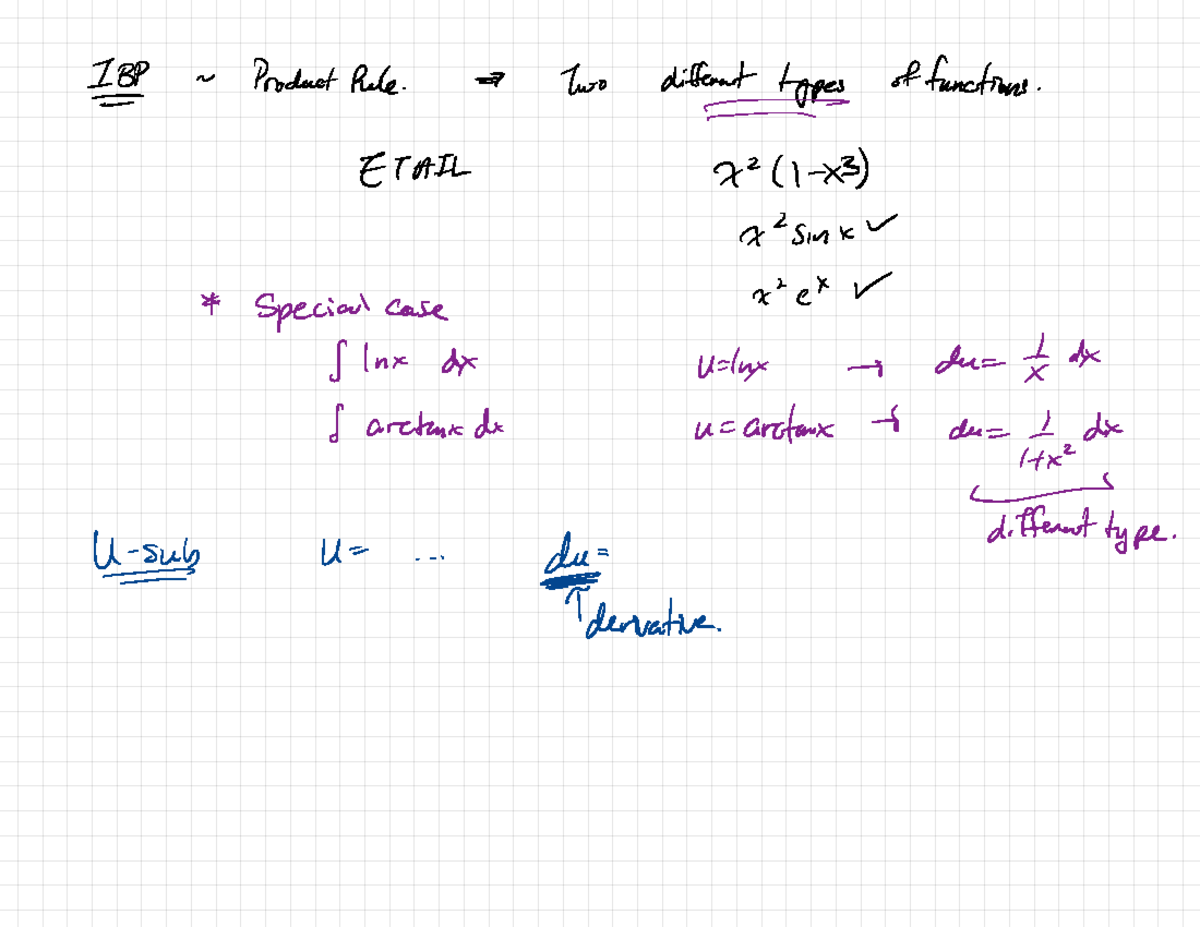 IBP ~ Product Rule. ⇒ Two different types of functions.
ETAIL x² (1-x³)
x² sin x ✓
x² eˣ ✓
* Special case
∫ lnx dx u=lnx → du= 1/x dx
∫ arctanx dx u=arctanx → du= 1/(1+x²) dx
different type.
U-sub u= ... du=
↑ derivative.